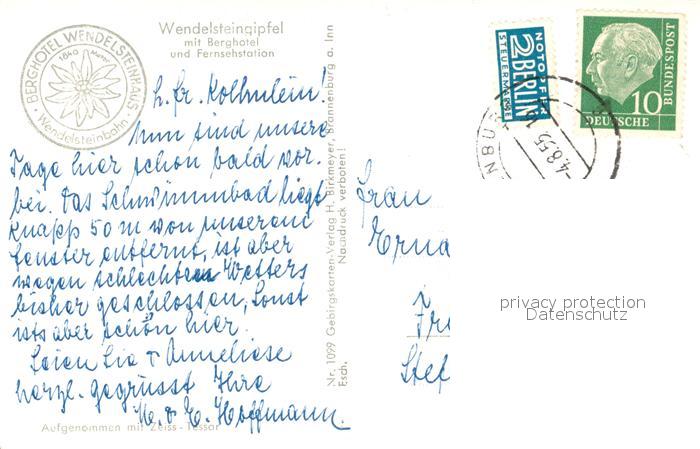 BERGHOTEL WENDELSTEINHAUS
1840 Meter
Wendelsteinbahn
Wendelsteingipfel
mit Berghotel
und Fernsehstation
L. Fr. Kolhnlein!
Nun sind unsere
Tage hier schon bald vor-
bei. Das Schwimmbad liegt
knapp 50 m von unserem
Fenster entfernt, ist aber
wegen schlechten Wetters
bisher geschlossen, sonst
ists aber schön hier.
Seien Sie & Anneliese
herzl. gegrüsst Ihre
M. & E. Hoffmann.
Aufgenommen mit Zeiss-Tessar
Nr. 1099 Gebirgskarten-Verlag H. Birkmeyer, Brannenburg a. Inn
Esch. Nachdruck verboten!
NOTOPFER
2 BERLIN
STEUERMARKE
10
DEUTSCHE
BUNDESPOST
NBU
-4.8.55
Frau
Erna
Fr
Stef
privacy protection
Datenschutz